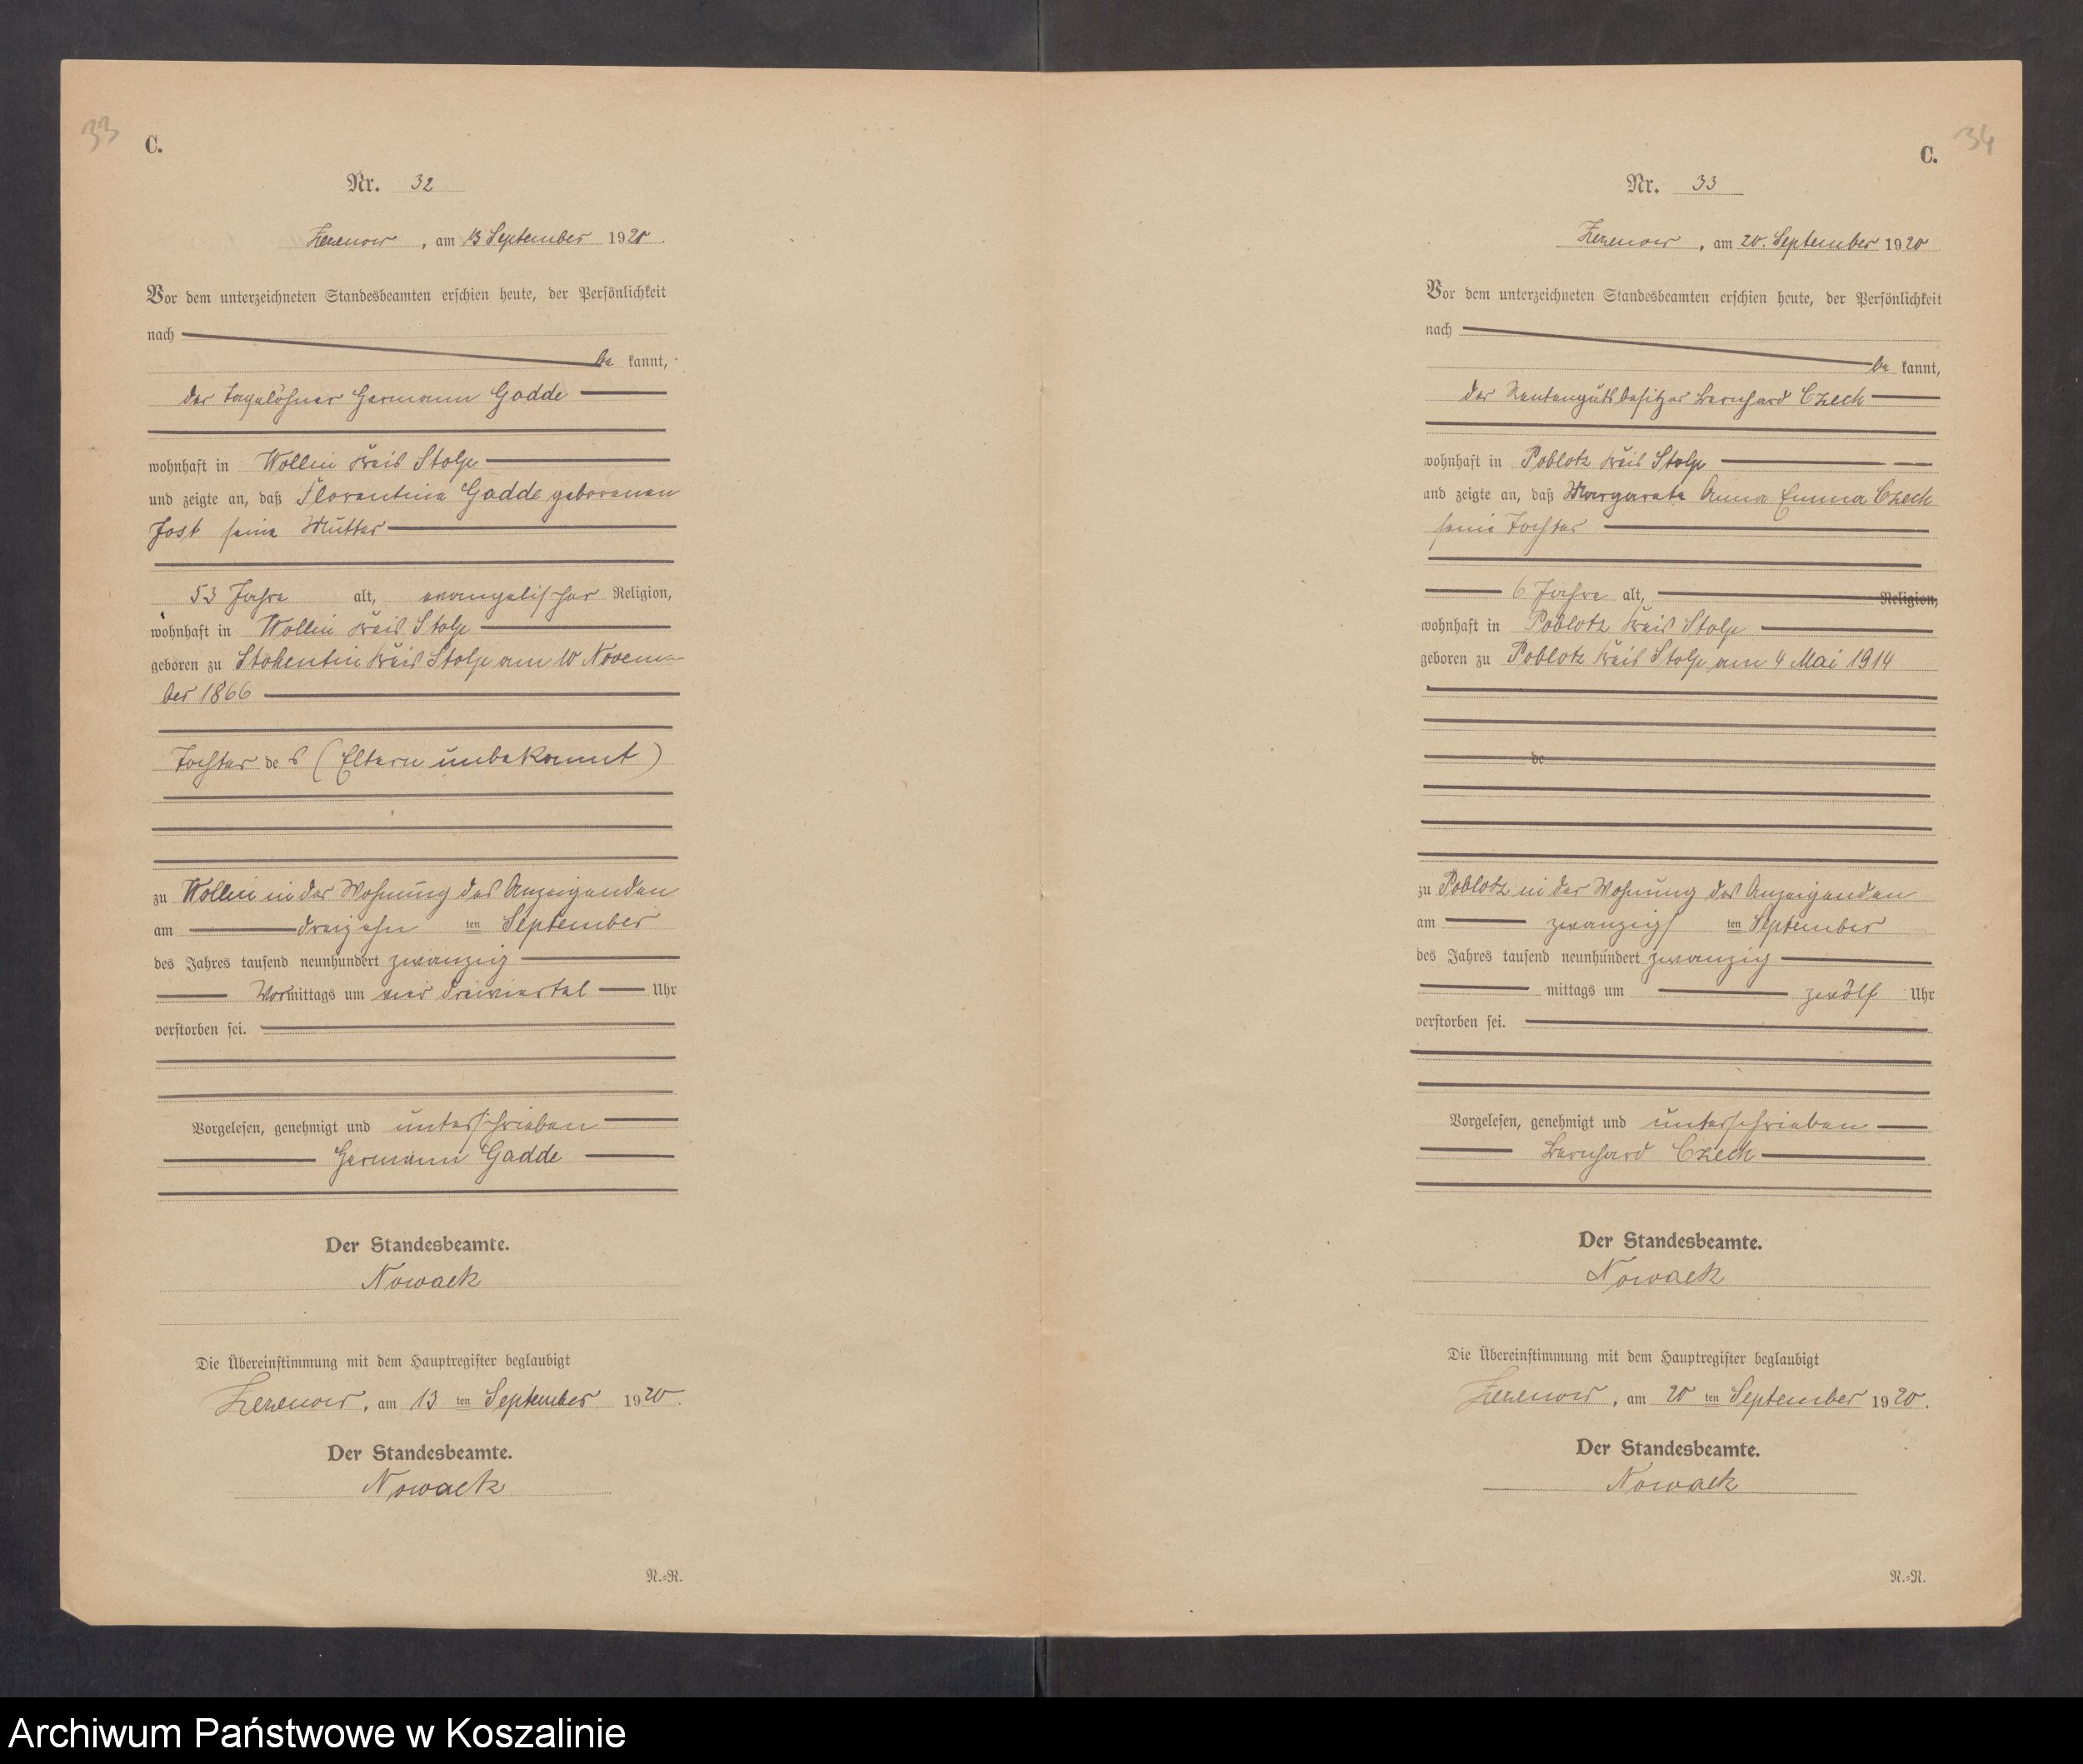 33
C.
Nr. 32
Zezenow, am 13 September 1920.
Vor dem unterzeichneten Standesbeamten erschien heute, der Persönlichkeit
nach
be kannt,
der Tagelöhner Hermann Gadde
wohnhaft in Wollin Kreis Stolp
und zeigte an, daß Florentine Gadde geborenen
Jost seine Mutter
53 Jahre alt, evangelischer Religion,
wohnhaft in Wollin Kreis Stolp
geboren zu Stohentin Kreis Stolp am 10 Novem-
ber 1866
Tochter des (Eltern unbekannt)
zu Wollin in der Wohnung des Anzeigenden
am dreizehn ten September
des Jahres tausend neunhundert zwanzig
Vormittags um vier dreiviertel Uhr
verstorben sei.
Vorgelesen, genehmigt und unterschrieben
Hermann Gadde
Der Standesbeamte.
Nowack
Die Übereinstimmung mit dem Hauptregister beglaubigt
Zezenow, am 13 ten September 1920.
Der Standesbeamte.
Nowack
N.=R.
34
C.
Nr. 33
Zezenow, am 20. September 1920
Vor dem unterzeichneten Standesbeamten erschien heute, der Persönlichkeit
nach
be kannt,
der Rentengutsbesitzer Bernhard Czech
wohnhaft in Poblotz Kreis Stolp
und zeigte an, daß Margarete Anna Emma Czech
seine Tochter
6 Jahre alt, Religion,
wohnhaft in Poblotz Kreis Stolp
geboren zu Poblotz Kreis Stolp am 4 Mai 1914
de
zu Poblotz in der Wohnung des Anzeigenden
am zwanzigs ten September
des Jahres tausend neunhundert zwanzig
mittags um zwölf Uhr
verstorben sei.
Vorgelesen, genehmigt und unterschrieben
Bernhard Czech
Der Standesbeamte.
Nowack
Die Übereinstimmung mit dem Hauptregister beglaubigt
Zezenow, am 20 ten September 1920.
Der Standesbeamte.
Nowack
N.=R.
Archiwum Państwowe w Koszalinie